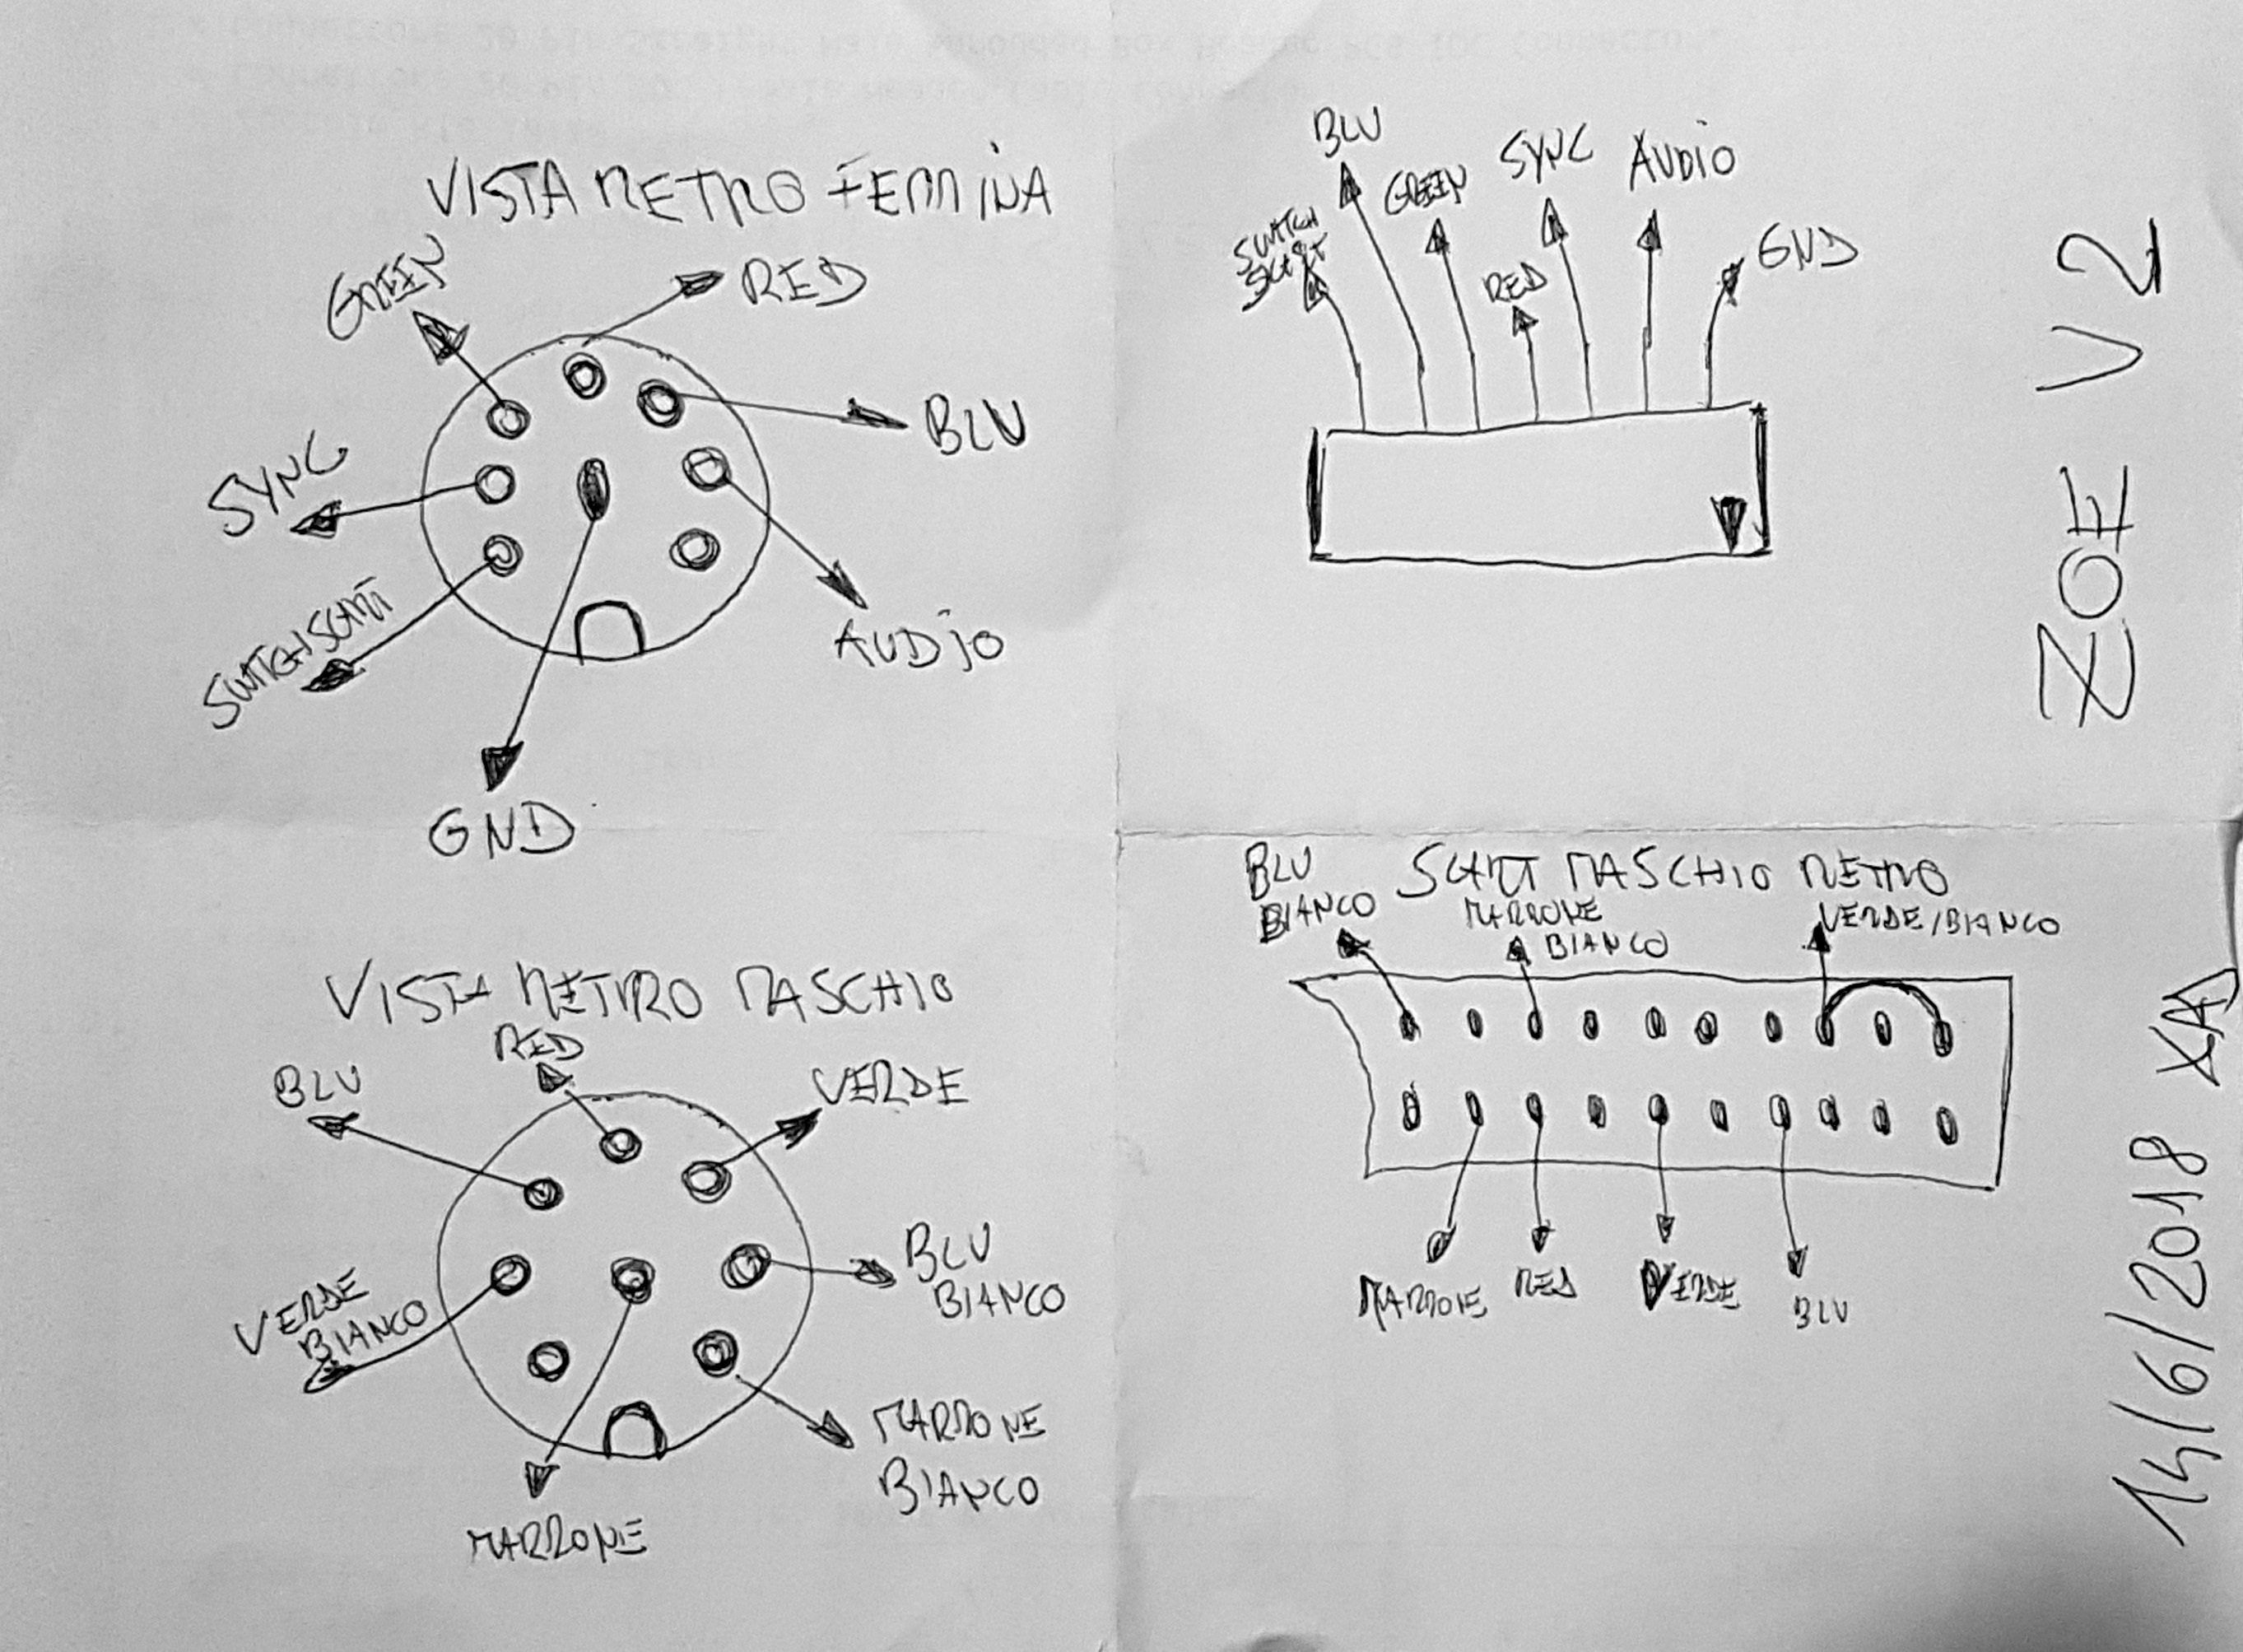 VISTA RETRO FEMMINA
GREEN
RED
BLU
SYNC
AUDIO
SWITCH SCART
GND
BLU
GREEN
SYNC
AUDIO
SWITCH
SCART
RED
GND
ZOE V2
VISTA RETRO MASCHIO
RED
BLU
VERDE
BLU
BIANCO
VERDE
BIANCO
MARRONE
BIANCO
MARRONE
SCART MASCHIO RETRO
BLU
BIANCO
MARRONE
BIANCO
VERDE/BIANCO
MARRONE
RED
VERDE
BLU
14/6/2018